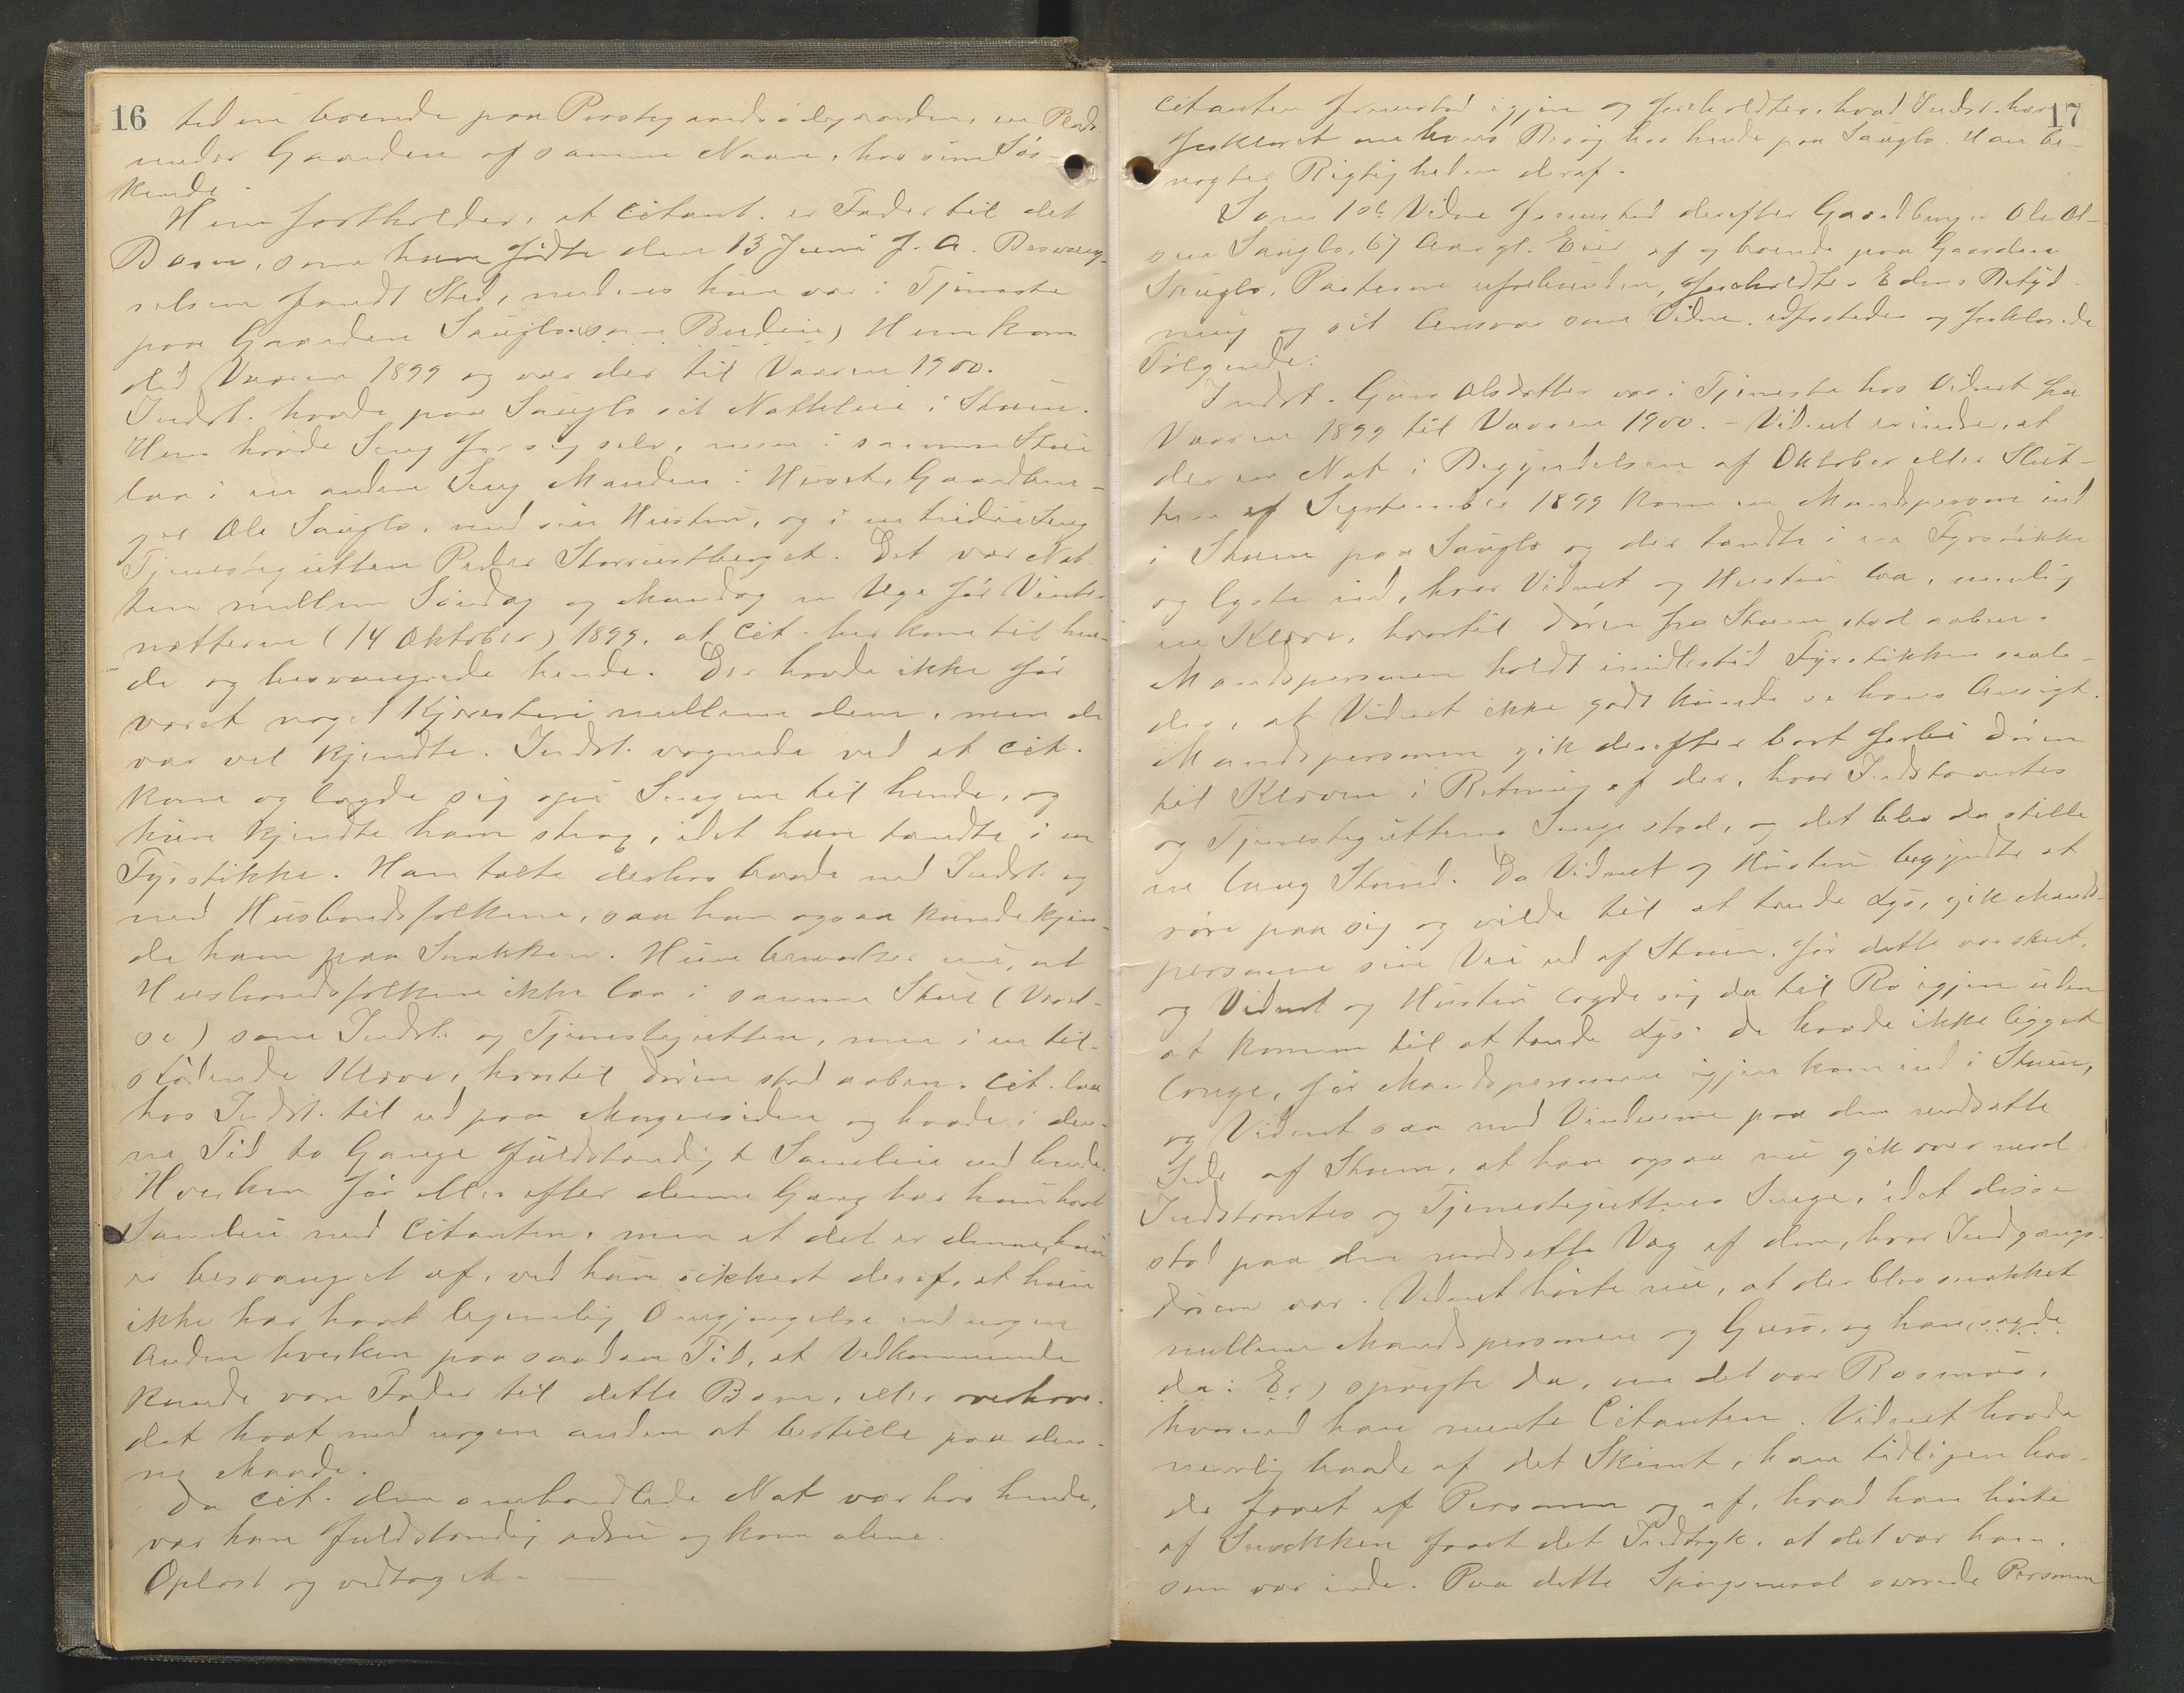 16
tiden boende paa Prestegaardsødegaarden, en Plads
under Gaarden af samme Navn, hos sine Søs-
kende.
Hun fastholder, at Citant. er Fader til det
Barn, som hun fødte den 13 Juni f. A. Besvang-
relsen fandt Sted, medens hun var i Tjeneste
paa Gaarden Sauglo (som Budeie) Hun kom
did Vaaren 1899 og var der til Vaaren 1900.
Indst. havde paa Sauglo sit Natteleie i Stuen.
Hun havde Seng for sig selv, men i samme Stue
laa i en anden Seng Manden i Huset, Gaardbru-
ger Ole Sauglo, med sin Hustru, og i en tredie Seng
Tjenestegutten Peder Storrustberget. Det var Nat-
ten mellem Søndag og Mandag en Uge før Vinter-
nætterne (14 Oktober) 1899, at Cit. her kom til hen-
de og besvangrede hende. Der havde ikke før
været noget Kjæresteri mellem dem, men de
var vel kjendte. Indst. vognede ved at Cit.
kom og lagde sig op i Sengen til hende, og
hun kjendte ham strax, idet han tændte i en
Fyrstikke. Han talte derhos baade med Indst. og
med Husbondsfolkene, saa hun ogsaa kunde kjen-
de ham paa Snakken. Hun bemærker nu, at
Husbondsfolkene ikke laa i samme Stue (Vaad-
se) som Indst. og Tjenestegutten, men i en til-
stødende Kleve, hvortil Døren stod aaben. Cit. laa
hos Indst. til ud paa Morgensiden og havde i den-
ne Tid to Gange fuldstændigt Samleie med hende.
Hverken før eller efter denne Gang har hun havt
Samleie med Citanten, men at det er denne, hun
er besvangret af, ved hun sikkert deraf, at hun
ikke har havt legemlig Omgjængelse med nogen
Anden hverken paa saadan Tid, at Vedkommende
kunde være Fader til dette Barn, eller overhove-
det havt med nogen anden at bestille paa den-
ne Maade.
Da Cit. den omhandlede Nat var hos hende,
var han fuldstændig ædru og kom alene.
Oplæst og vedtaget. —
17
Citanten fremstod igjen og foreholdtes, hvad Indst. har
forklaret om hans Besøg hos hende paa Sauglo. Han be-
nægter Rigtigheden deraf.
Som 1ste Vidne fremstod derefter Gaardbruger Ole Ol-
sen Sauglo, 67 Aar gl. Eier af og boende paa Gaarden
Sauglo, Parterne uforbunden, foreholdtes Edens Betyd-
ning og sit Ansvar som Vidne, edfæstedes og forklarede
Følgende:
Indst. Guro Olsdatter var i Tjeneste hos Vidnet fra
Vaaren 1899 til Vaaren 1900. – Vidnet erindrer, at
der en Nat i Begyndelsen af Oktober eller Slut-
ten af September 1899 kom en Mandsperson ind
i Stuen paa Sauglo og der tændte i en Fyrstikke
og lyste ind, hvor Vidnet og Hustru laa, nemlig
en Kleve, hvortil Døren fra Stuen stod aaben.
Mandspersonen holdt imidlertid Fyrstikken saale-
des, at Vidnet ikke godt kunde se hans Ansigt.
Mandspersonen gik derefter bort forbi Døren
til Kleven i Retning af der, hvor Indstævntes
og Tjenestegutternes Senge stod, og det blev da stille
en lang Stund. Da Vidnet og Hustru begyndte at
røre paa sig og vilde til at tænde Lys, gik Mands-
personen sin Vei ud af Stuen, før dette var skeet,
og Vidnet og Hustru lagde sig da til Ro igjen uden
at komme til at tænde Lys. De havde ikke ligget
længe, før Mandspersonen igjen kom ind i Stuen,
og Vidnet saa mod Vinduerne paa den modsatte
Side af Stuen, at han ogsaa nu gik over mod
Indstævntes og Tjenestegutternes Senge, idet disse
stod paa den modsatte Væg af den, hvor Indgangs-
døren var. Vidnet hørte nu, at der blev snakket
mellem Mandspersonen og Guro, og han (sagde
da: Er) spurgte da, om det var Rasmus,
hvormed han mente Citanten. Vidnet havde
nemlig baade af det Skimt, han tidligere hav-
de faaet af Personen og af, hvad han hørte
af Snakken faaet det Indtryk, at det var ham,
som var inde. Paa dette Spørgsmaal svarede Personen